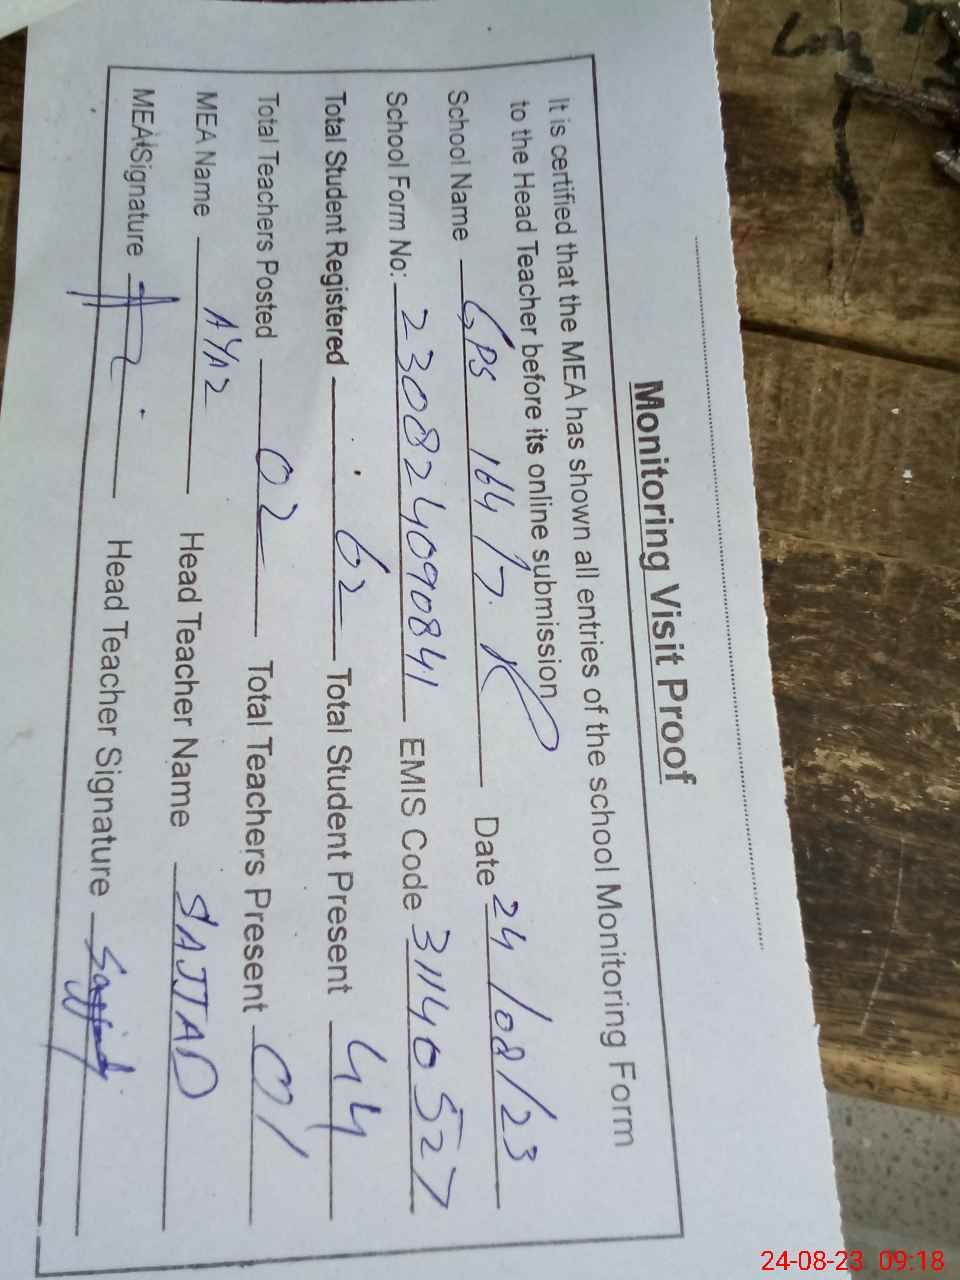 Monitoring Visit Proof
It is certified that the MEA has shown all entries of the school Monitoring Form
to the Head Teacher before its online submission
School Name GPS 164/7.R Date 24/08/23
School Form No: 23082409090841 EMIS Code 31140527
Total Student Registered 62 Total Student Present 44
Total Teachers Posted 02 Total Teachers Present 01
MEA Name AYAZ Head Teacher Name SAJJAD
MEA Signature Head Teacher Signature Sajjad
24-08-23 09:18